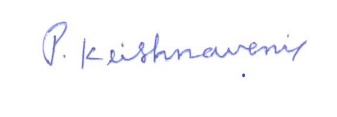 P. Krishnaveni